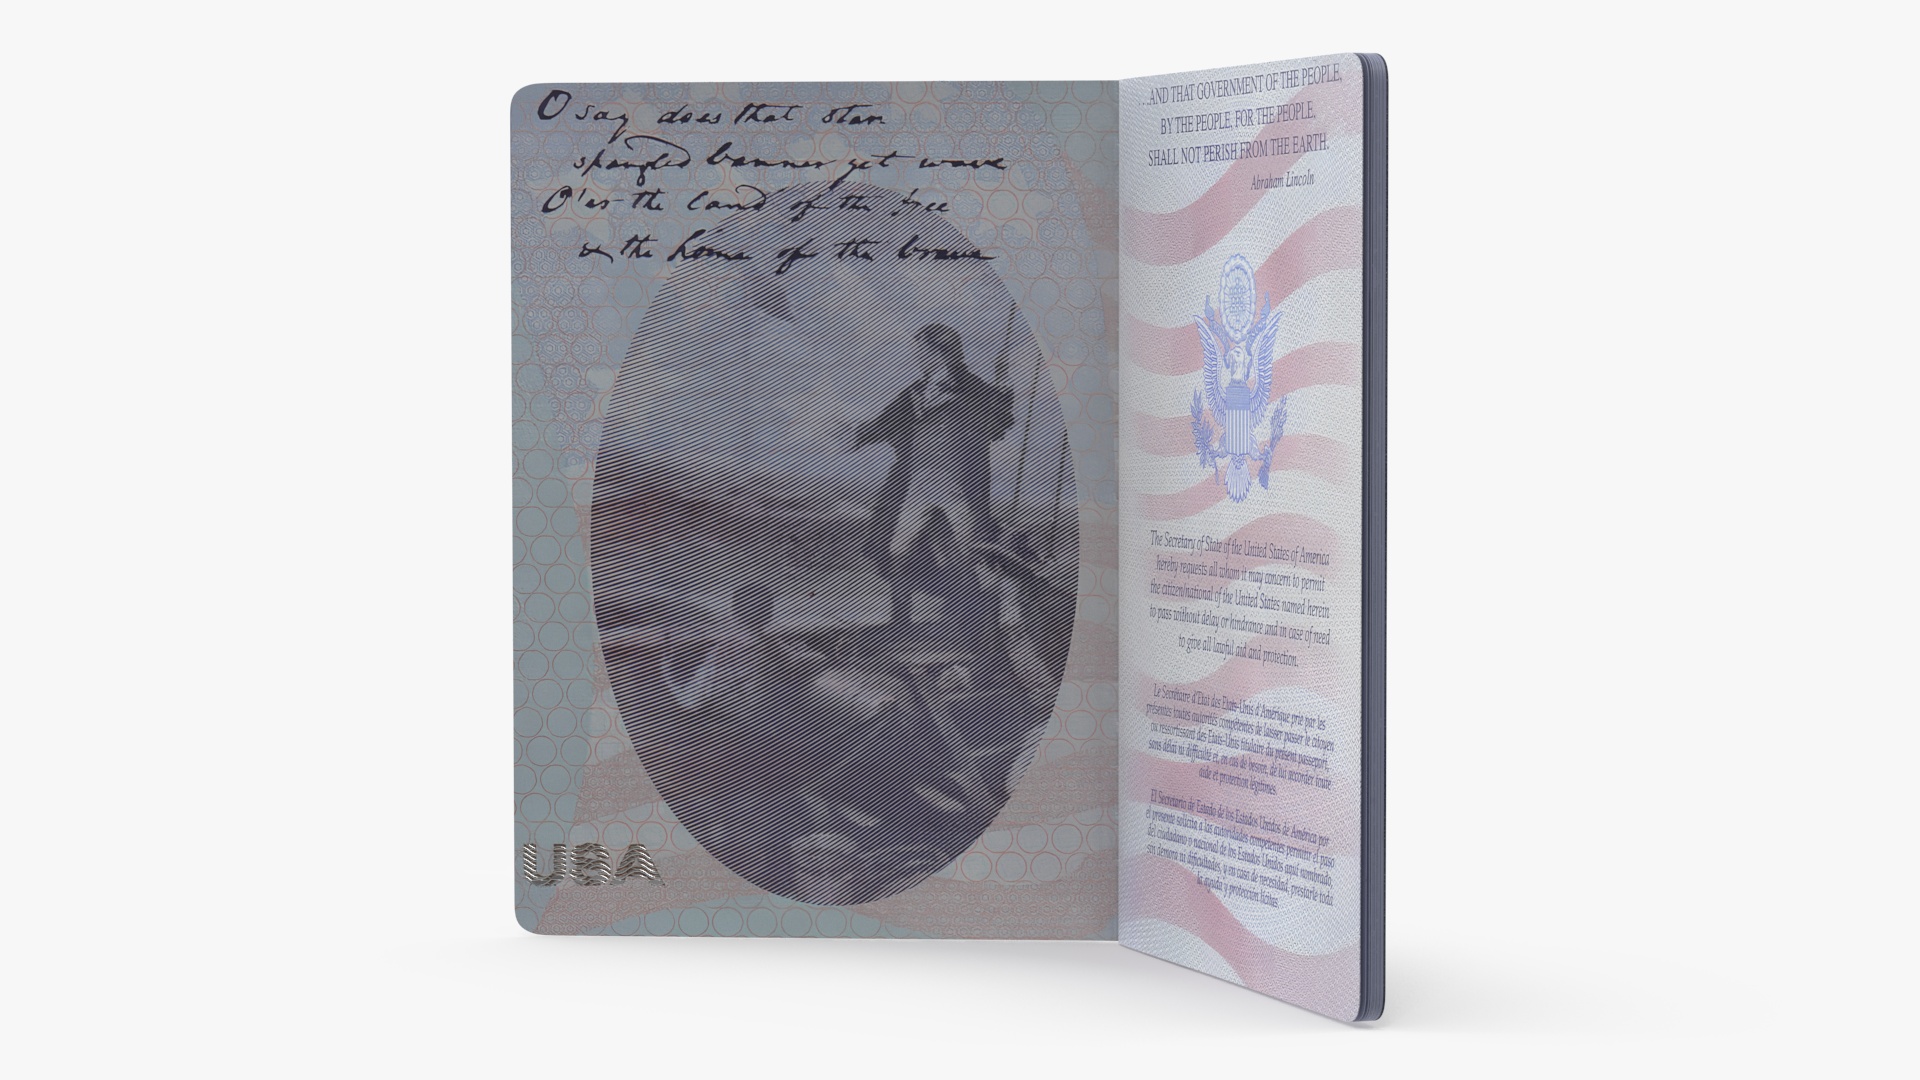 O say does that star
spangled banner yet wave
O'er the land of the free
& the home of the brave
USA
...AND THAT GOVERNMENT OF THE PEOPLE,
BY THE PEOPLE, FOR THE PEOPLE,
SHALL NOT PERISH FROM THE EARTH.
Abraham Lincoln
The Secretary of State of the United States of America
hereby requests all whom it may concern to permit
the citizen/national of the United States named herein
to pass without delay or hindrance and in case of need
to give all lawful aid and protection.
Le Secrétaire d'Etat des Etats-Unis d'Amérique prie par les
présentes toutes autorités compétentes de laisser passer le citoyen
ou ressortissant des Etats-Unis titulaire du présent passeport,
sans délai ni difficulté et, en cas de besoin, de lui accorder toute
aide et protection légitimes.
El Secretario de Estado de los Estados Unidos de América por
el presente solicita a las autoridades competentes permitir el paso
del ciudadano o nacional de los Estados Unidos aquí nombrado,
sin demora ni dificultades, y en caso de necesidad, prestarle toda
la ayuda y protección lícitas.